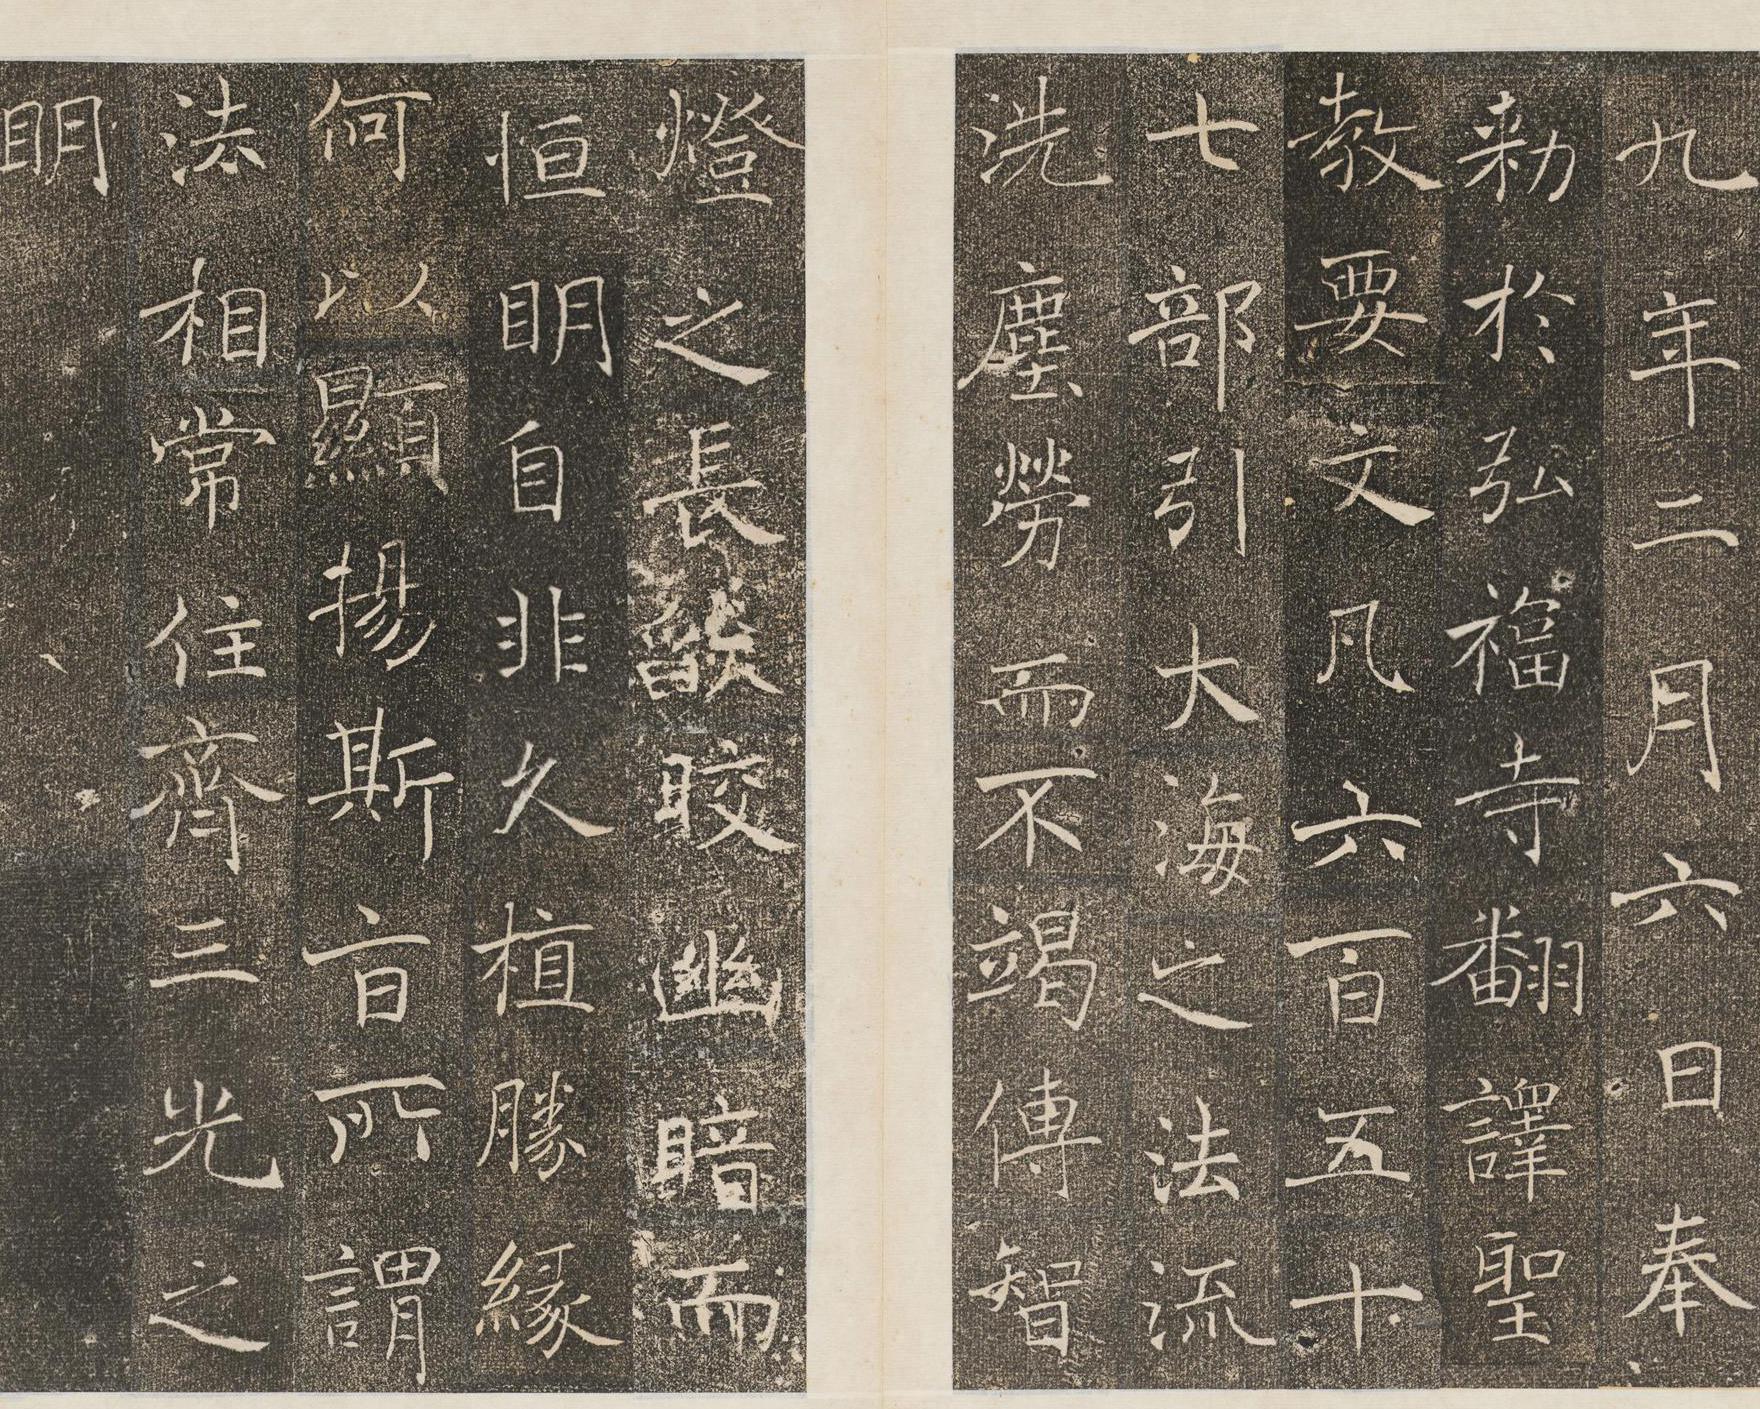 九年二月六日奉
勑於弘福寺翻譯聖
教要文凡六百五十
七部引大海之法流
洗塵勞而不竭傳智
燈之長燄皎幽暗而
恒明自非久植勝緣
何以顯揚斯旨所謂
法相常住齊三光之
明